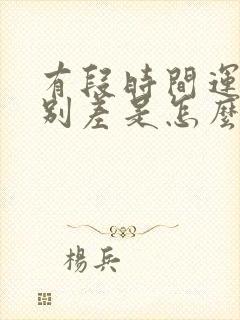 有段時間運
別差是怎麼
楊兵